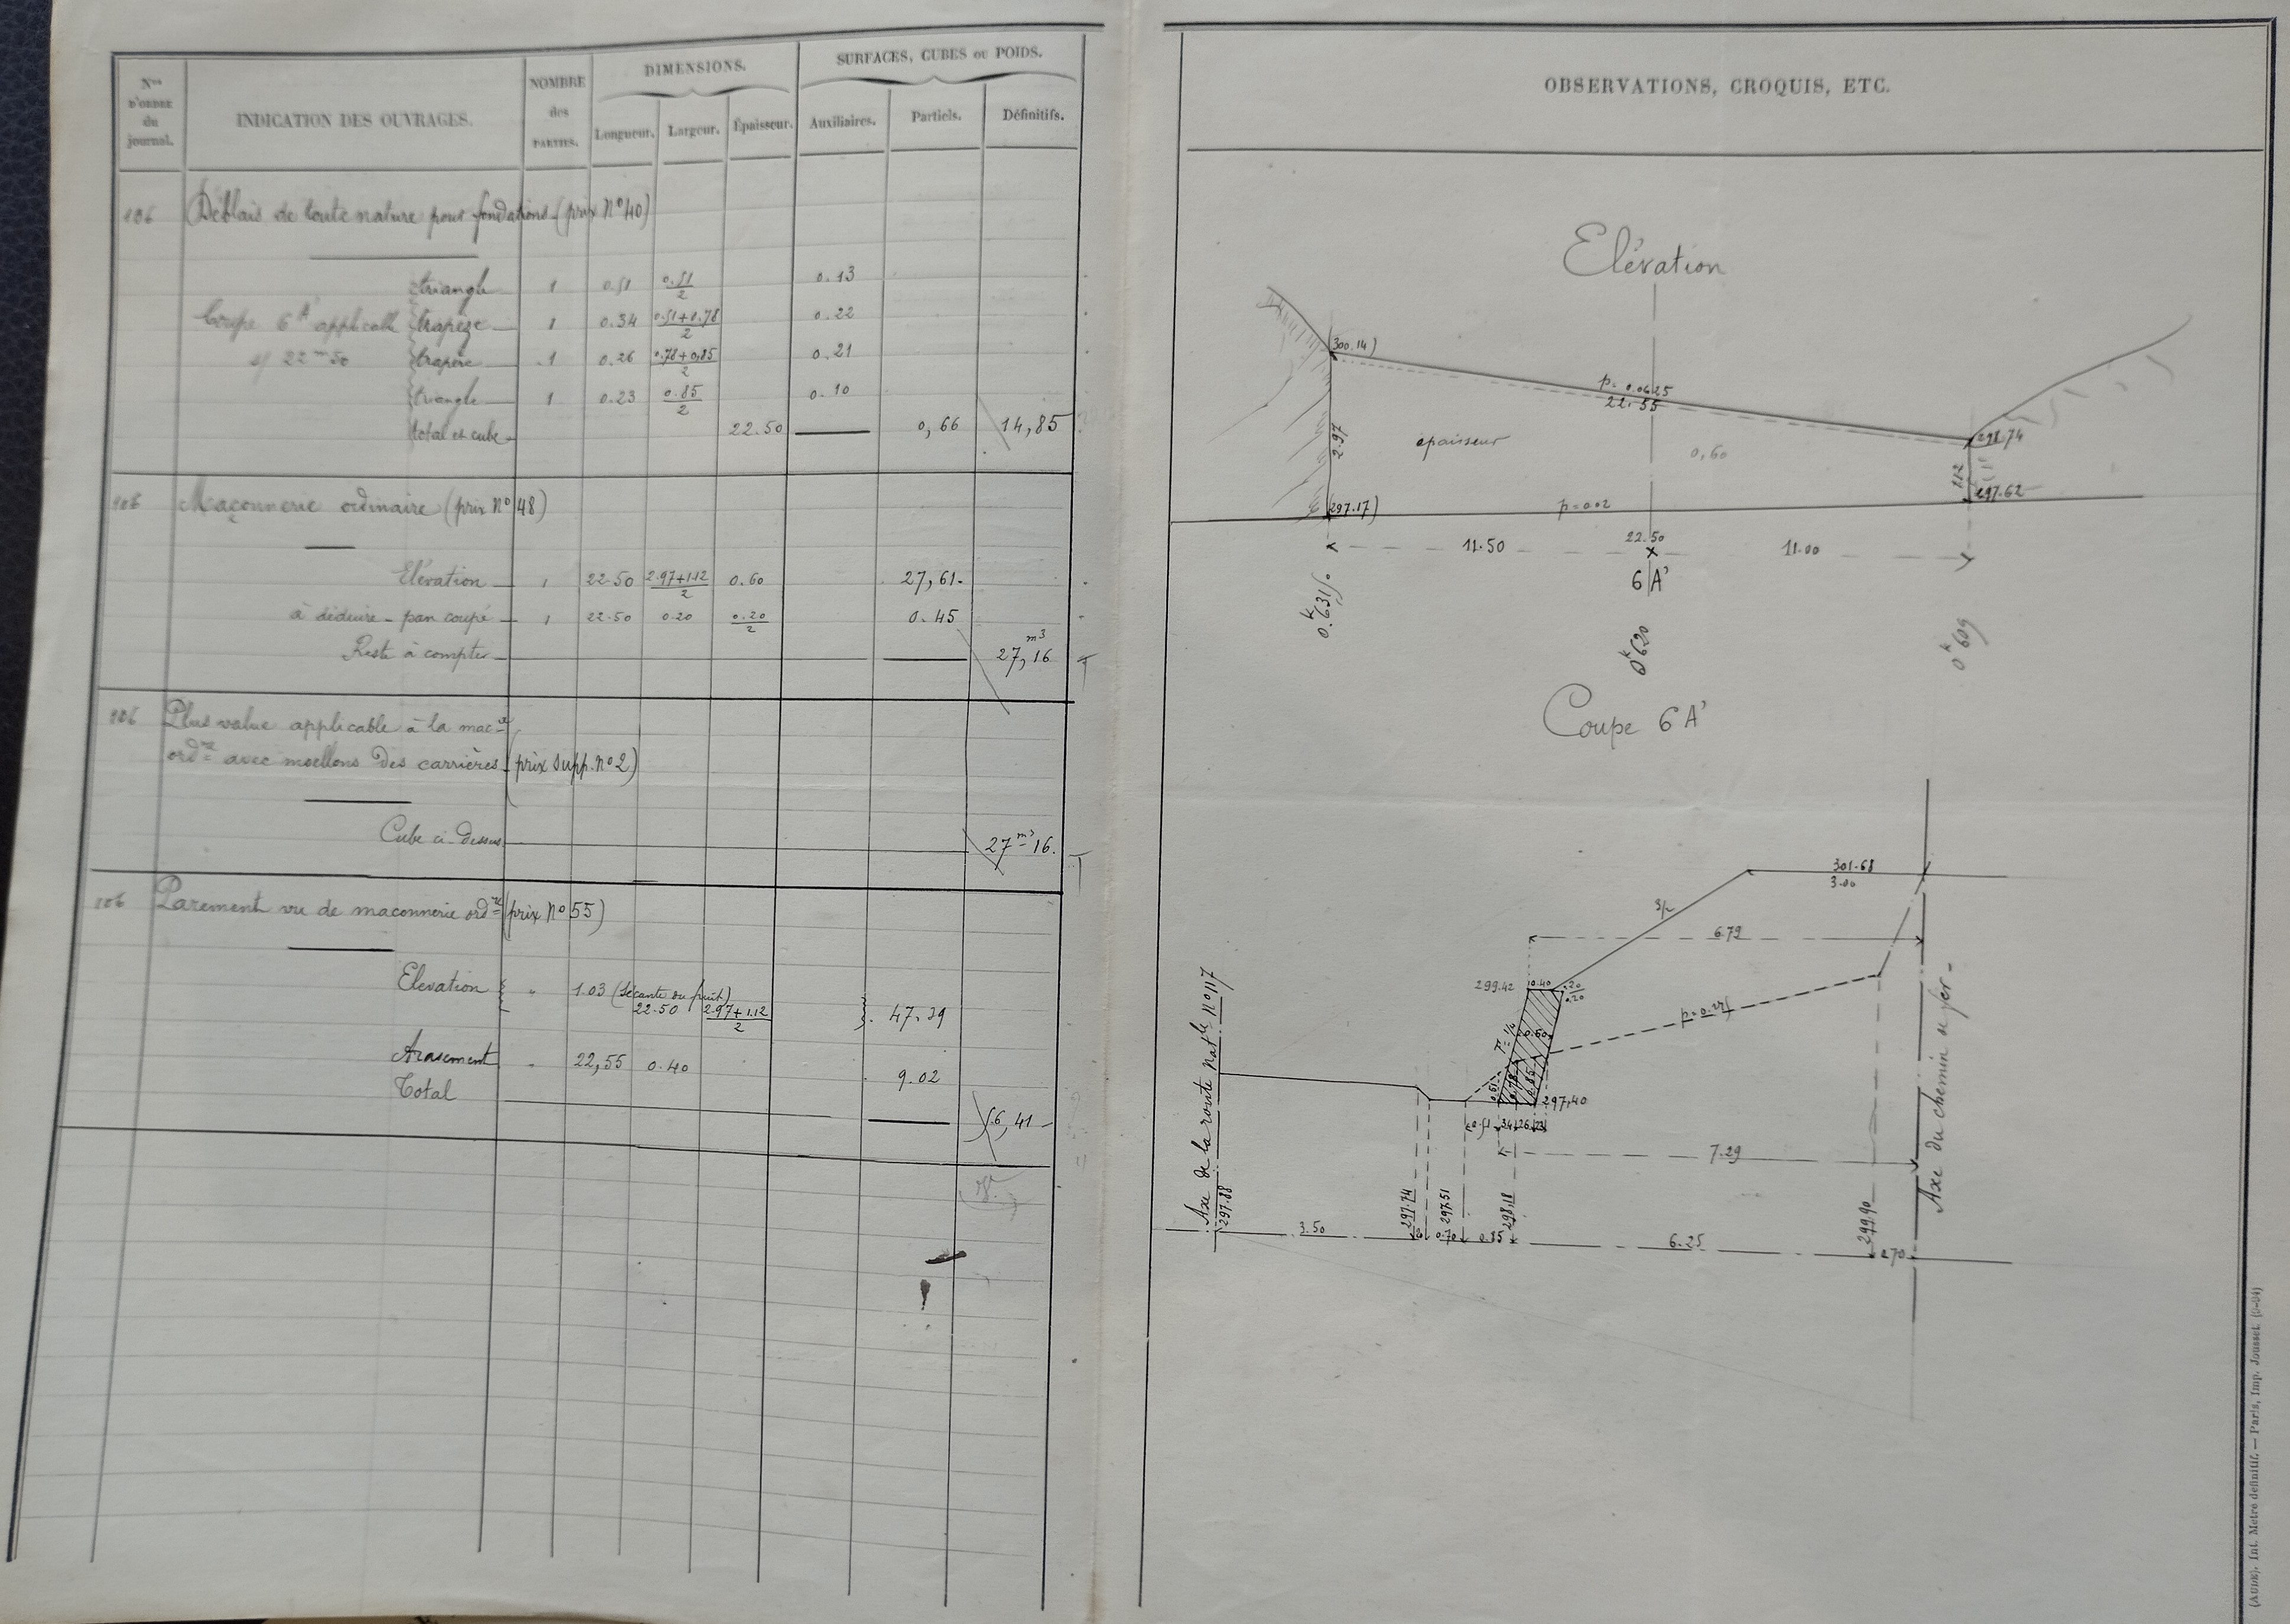 Nos D'ORDRE du journal.
INDICATION DES OUVRAGES.
NOMBRE des PARTIES.
DIMENSIONS.
Longueur. Largeur. Épaisseur.
SURFACES, CUBES ou POIDS.
Auxiliaires. Partiels. Définitifs.
106 Déblais de toute nature pour fondations (prix No 40)
triangle 1 0.51 0.51/2 0.13
Coupe 6A' applicable trapèze 1 0.34 0.51+0.78/2 0.22
s/ 22m50 trapèze 1 0.26 0.78+0,85/2 0.21
triangle 1 0.23 0.85/2 0.10
total et cube 22.50 0,66 14,85
106 Maçonnerie ordinaire (prix No 48)
Elévation 1 22.50 2.97+1.12/2 0.60 27,61.
à déduire - pan coupé 1 22.50 0.20 0.20/2 0.45
Reste à compter 27,16 m3
106 Plus value applicable à la mac-ie
ordre avec moellons des carrières (prix supp. no 2)
Cube ci-dessus 27m3 16.
106 Parement vu de maconnerie ordre (prix No 55)
Elevation " 1.03 (Sécante du fruit)
22.50 2.97+1.12/2 47.39
Arasement " 22,55 0.40 9.02
Total 56,41
OBSERVATIONS, CROQUIS, ETC.
Elévation
300.14)
p= 0.0625
22.55
298.74
2.97
epaisseur
0,60
1.12
297.62
297.17)
p=0.02
11.50
22.50
11.00
6A'
0k631,50
0k620
0k609
Coupe 6A'
301.68
3.00
3/2
6.79
299.42
0.40
0.20
0.20
F= 1/4
0.60
0.51
0.78
0.85
297,40
0.51 34 26 23
7.29
Axe de la route natle No 117
297.88
297.74
297.51
298.18
299.90
Axe du chemin de fer -
3.50
0.70
0.85
6.25
2.70
(AUDE). Int. Métré définitif. — Paris, Imp. Jousset. (9-04)